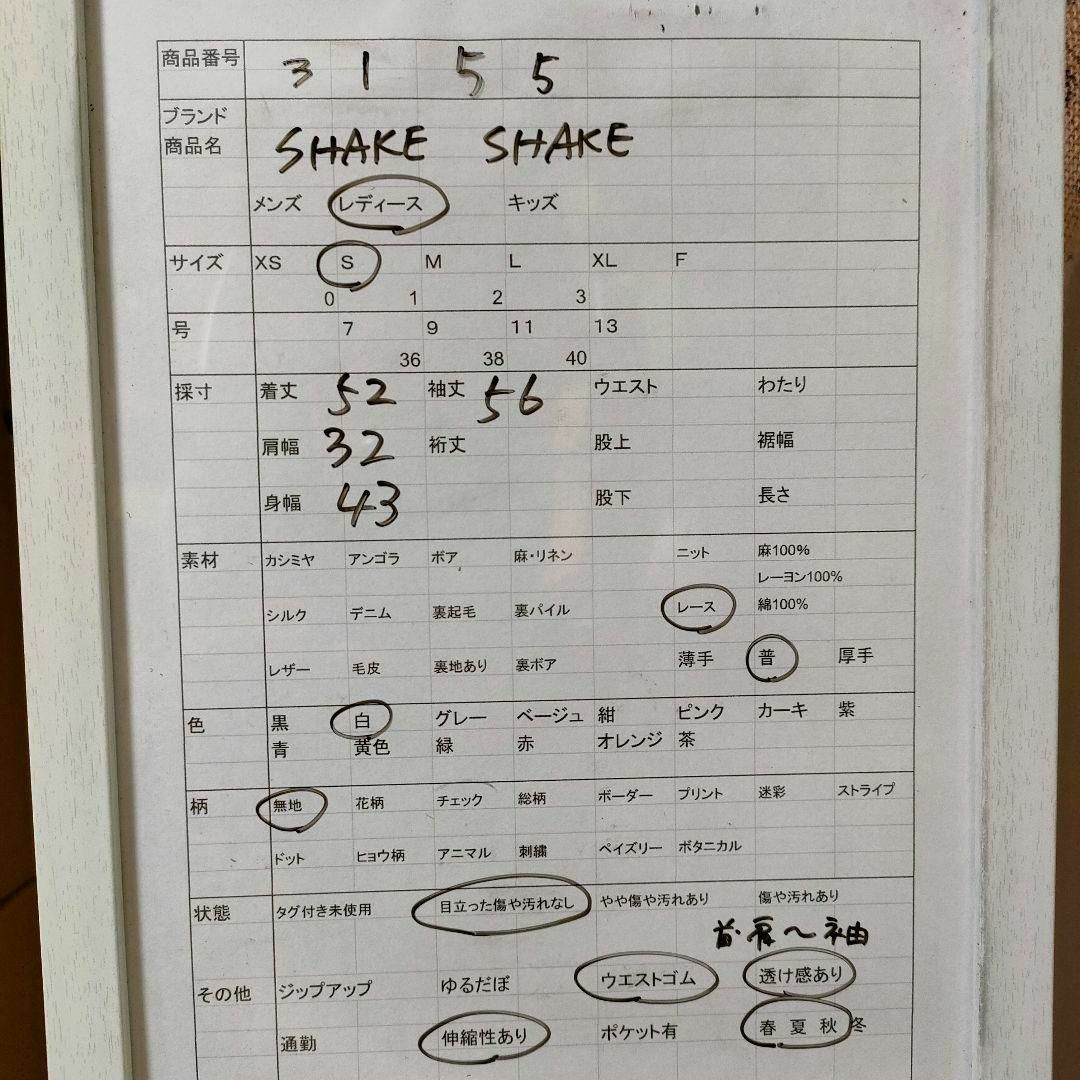 商品番号 3 1 5 5
ブランド
商品名 SHAKE SHAKE
メンズ レディース キッズ
サイズ XS S M L XL F
0 1 2 3
号 7 9 11 13
36 38 40
採寸 着丈 52 袖丈 56 ウエスト わたり
肩幅 32 裄丈 股上 裾幅
身幅 43 股下 長さ
素材 カシミヤ アンゴラ ボア 麻・リネン ニット 麻100%
レーヨン100%
シルク デニム 裏起毛 裏パイル レース 綿100%
レザー 毛皮 裏地あり 裏ボア 薄手 普 厚手
色 黒 白 グレー ベージュ 紺 ピンク カーキ 紫
青 黄色 緑 赤 オレンジ 茶
柄 無地 花柄 チェック 総柄 ボーダー プリント 迷彩 ストライプ
ドット ヒョウ柄 アニマル 刺繍 ペイズリー ボタニカル
状態 タグ付き未使用 目立った傷や汚れなし やや傷や汚れあり 傷や汚れあり
首・肩〜袖
その他 ジップアップ ゆるだぼ ウエストゴム 透け感あり
通勤 伸縮性あり ポケット有 春 夏 秋 冬